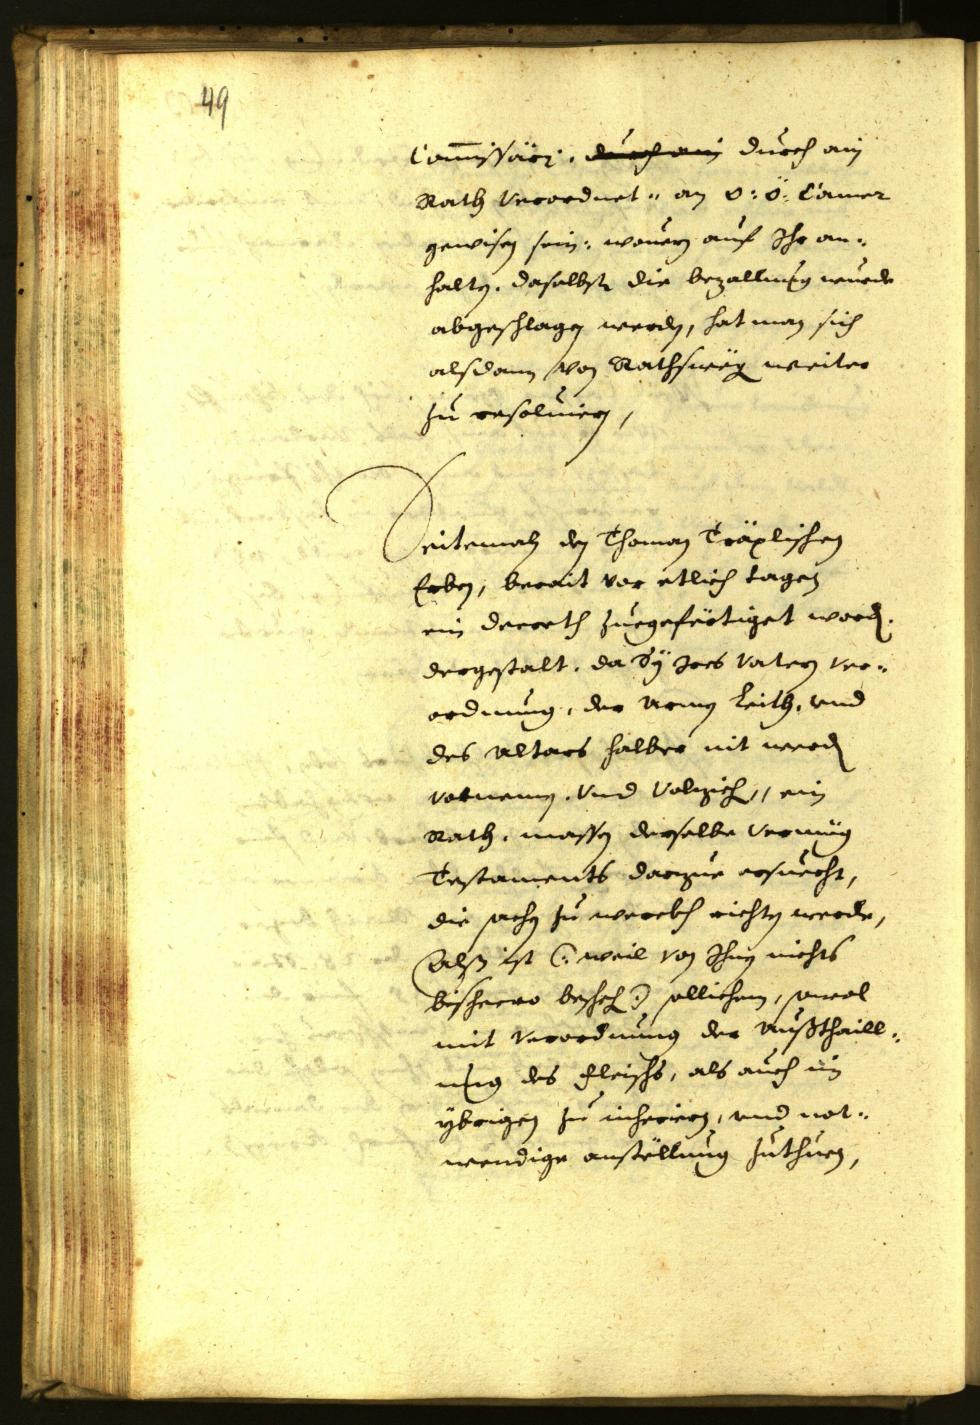 49
Commissäri. durch ain durch ain
Rath verordnet an O: Ö: Camer
gewisen sein: wouern auf Ihr an=
halten, daselbst die bezallung wurde
abgeschlagen werden, hat man sich
alsdann von Rathsweg weiter
zu resoluiern,
Seitemaln den Thoman Träxlischen
Erben, berait vor etlich tagen
ein decreth zuegefertiget worden.
dergestalt, da Sÿ Ires Vatern ver=
ordnung, der armen Leith, vnd
des Altars halber nit werden
vornemen. Vnd Volnziehen, ein
Rath, massen derselbe vermüg
Testaments darzue ersuecht,
die sachen zu werckh richten werde,
Alß ist (: weil von Ihnen nichts
bisherro beschehen :) sollichem, sowol
mit verordnung der Außthaill=
ung des fleischs, als auch im
ybrigen zu inheriern, vnd not=
wendige anstellung zuthuen,